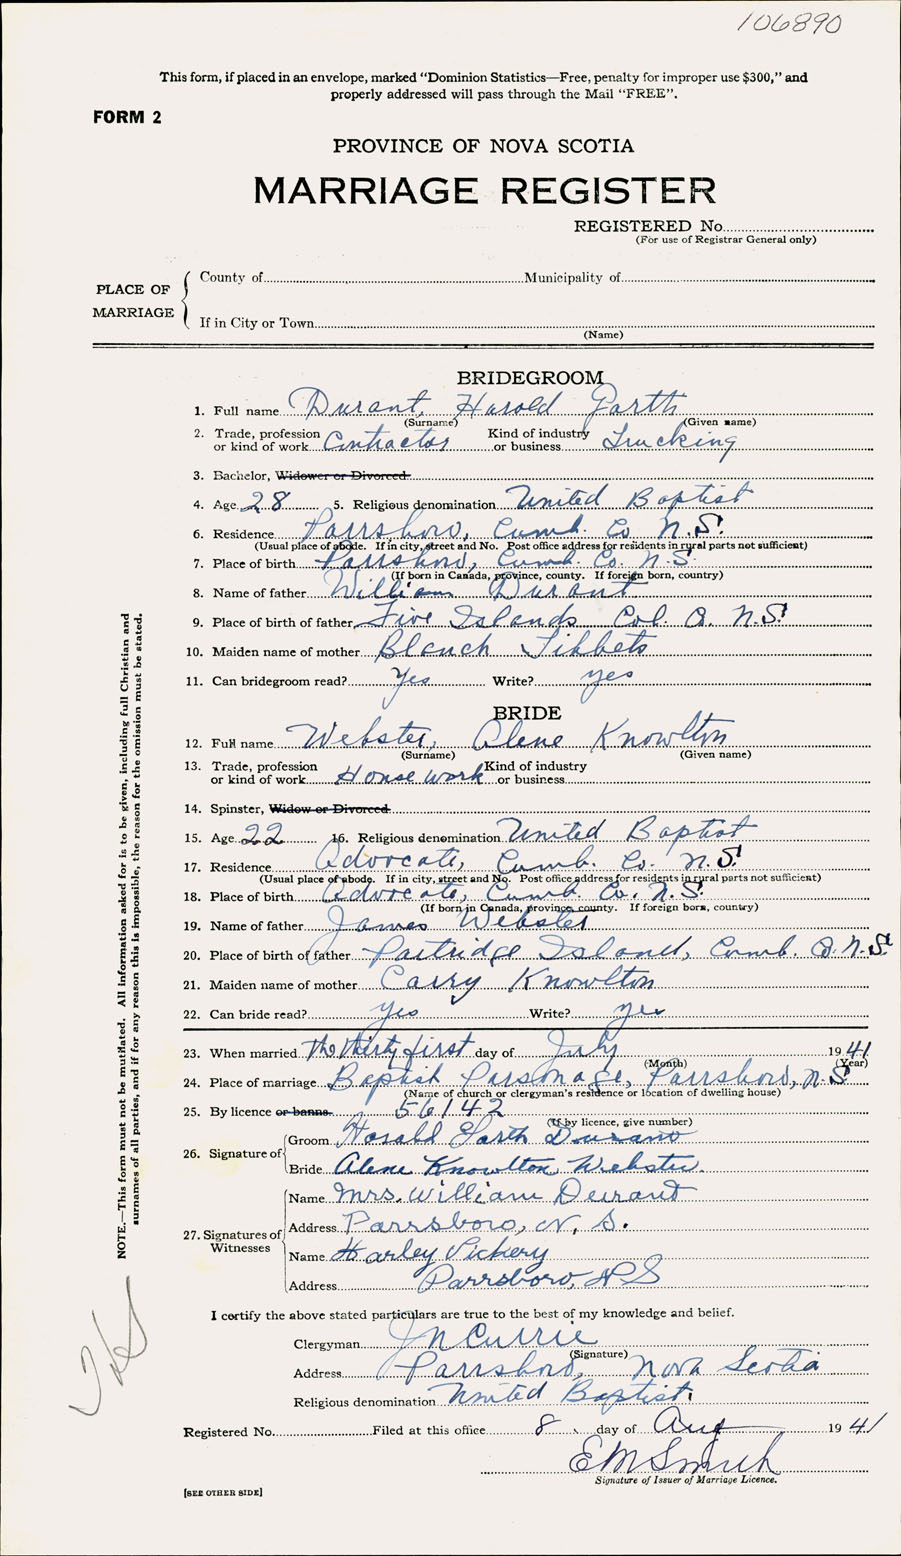 106890
This form, if placed in an envelope, marked "Dominion Statistics—Free, penalty for improper use $300," and
properly addressed will pass through the Mail "FREE".
FORM 2
PROVINCE OF NOVA SCOTIA
MARRIAGE REGISTER
REGISTERED No.
(For use of Registrar General only)
PLACE OF MARRIAGE
County of Municipality of
If in City or Town
(Name)
BRIDEGROOM
1. Full name Durant, Harold Garth
(Surname) (Given name)
2. Trade, profession or kind of work Contractor Kind of industry or business Trucking
3. Bachelor, Widower or Divorced
4. Age 28 5. Religious denomination United Baptist
6. Residence Parrsboro, Cumb. Co N.S.
(Usual place of abode. If in city, street and No. Post office address for residents in rural parts not sufficient)
7. Place of birth Parrsboro, Cumb. Co. N.S.
(If born in Canada, province, county. If foreign born, country)
8. Name of father William Durant
9. Place of birth of father Five Islands Col. Co. N.S.
10. Maiden name of mother Blanch Tibbets
11. Can bridegroom read? Yes Write? yes
BRIDE
12. Full name Webster, Alene Knowlton
(Surname) (Given name)
13. Trade, profession or kind of work House work Kind of industry or business
14. Spinster, Widow or Divorced
15. Age 22 16. Religious denomination United Baptist
17. Residence Advocate, Cumb. Co. N.S.
(Usual place of abode. If in city, street and No. Post office address for residents in rural parts not sufficient)
18. Place of birth Advocate, Cumb. Co. N.S.
(If born in Canada, province county. If foreign born, country)
19. Name of father James Webster
20. Place of birth of father Partridge Island, Cumb. Co. N.S.
21. Maiden name of mother Carry Knowlton
22. Can bride read? Yes Write? Yes
23. When married The thirty first day of July 1941
(Month) (Year)
24. Place of marriage Baptist Parsonage, Parrsboro, N.S.
(Name of church or clergyman's residence or location of dwelling house)
25. By licence or banns 56142
(If by licence, give number)
26. Signature of
Groom Harold Garth Durant
Bride Alene Knowlton Webster.
27. Signatures of Witnesses
Name Mrs. William Durant
Address Parrsboro, N, S.
Name Harley Vickery
Address Parrsboro, NS
I certify the above stated particulars are true to the best of my knowledge and belief.
Clergyman J N Currie
(Signature)
Address Parrsboro, Nova Scotia
Religious denomination United Baptist.
Registered No. Filed at this office 8 day of Aug 1941
E M Smith
Signature of Issuer of Marriage Licence.
[SEE OTHER SIDE]
NOTE.—This form must not be mutilated. All information asked for is to be given, including full Christian and
surnames of all parties, and if for any reason this is impossible, the reason for the omission must be stated.